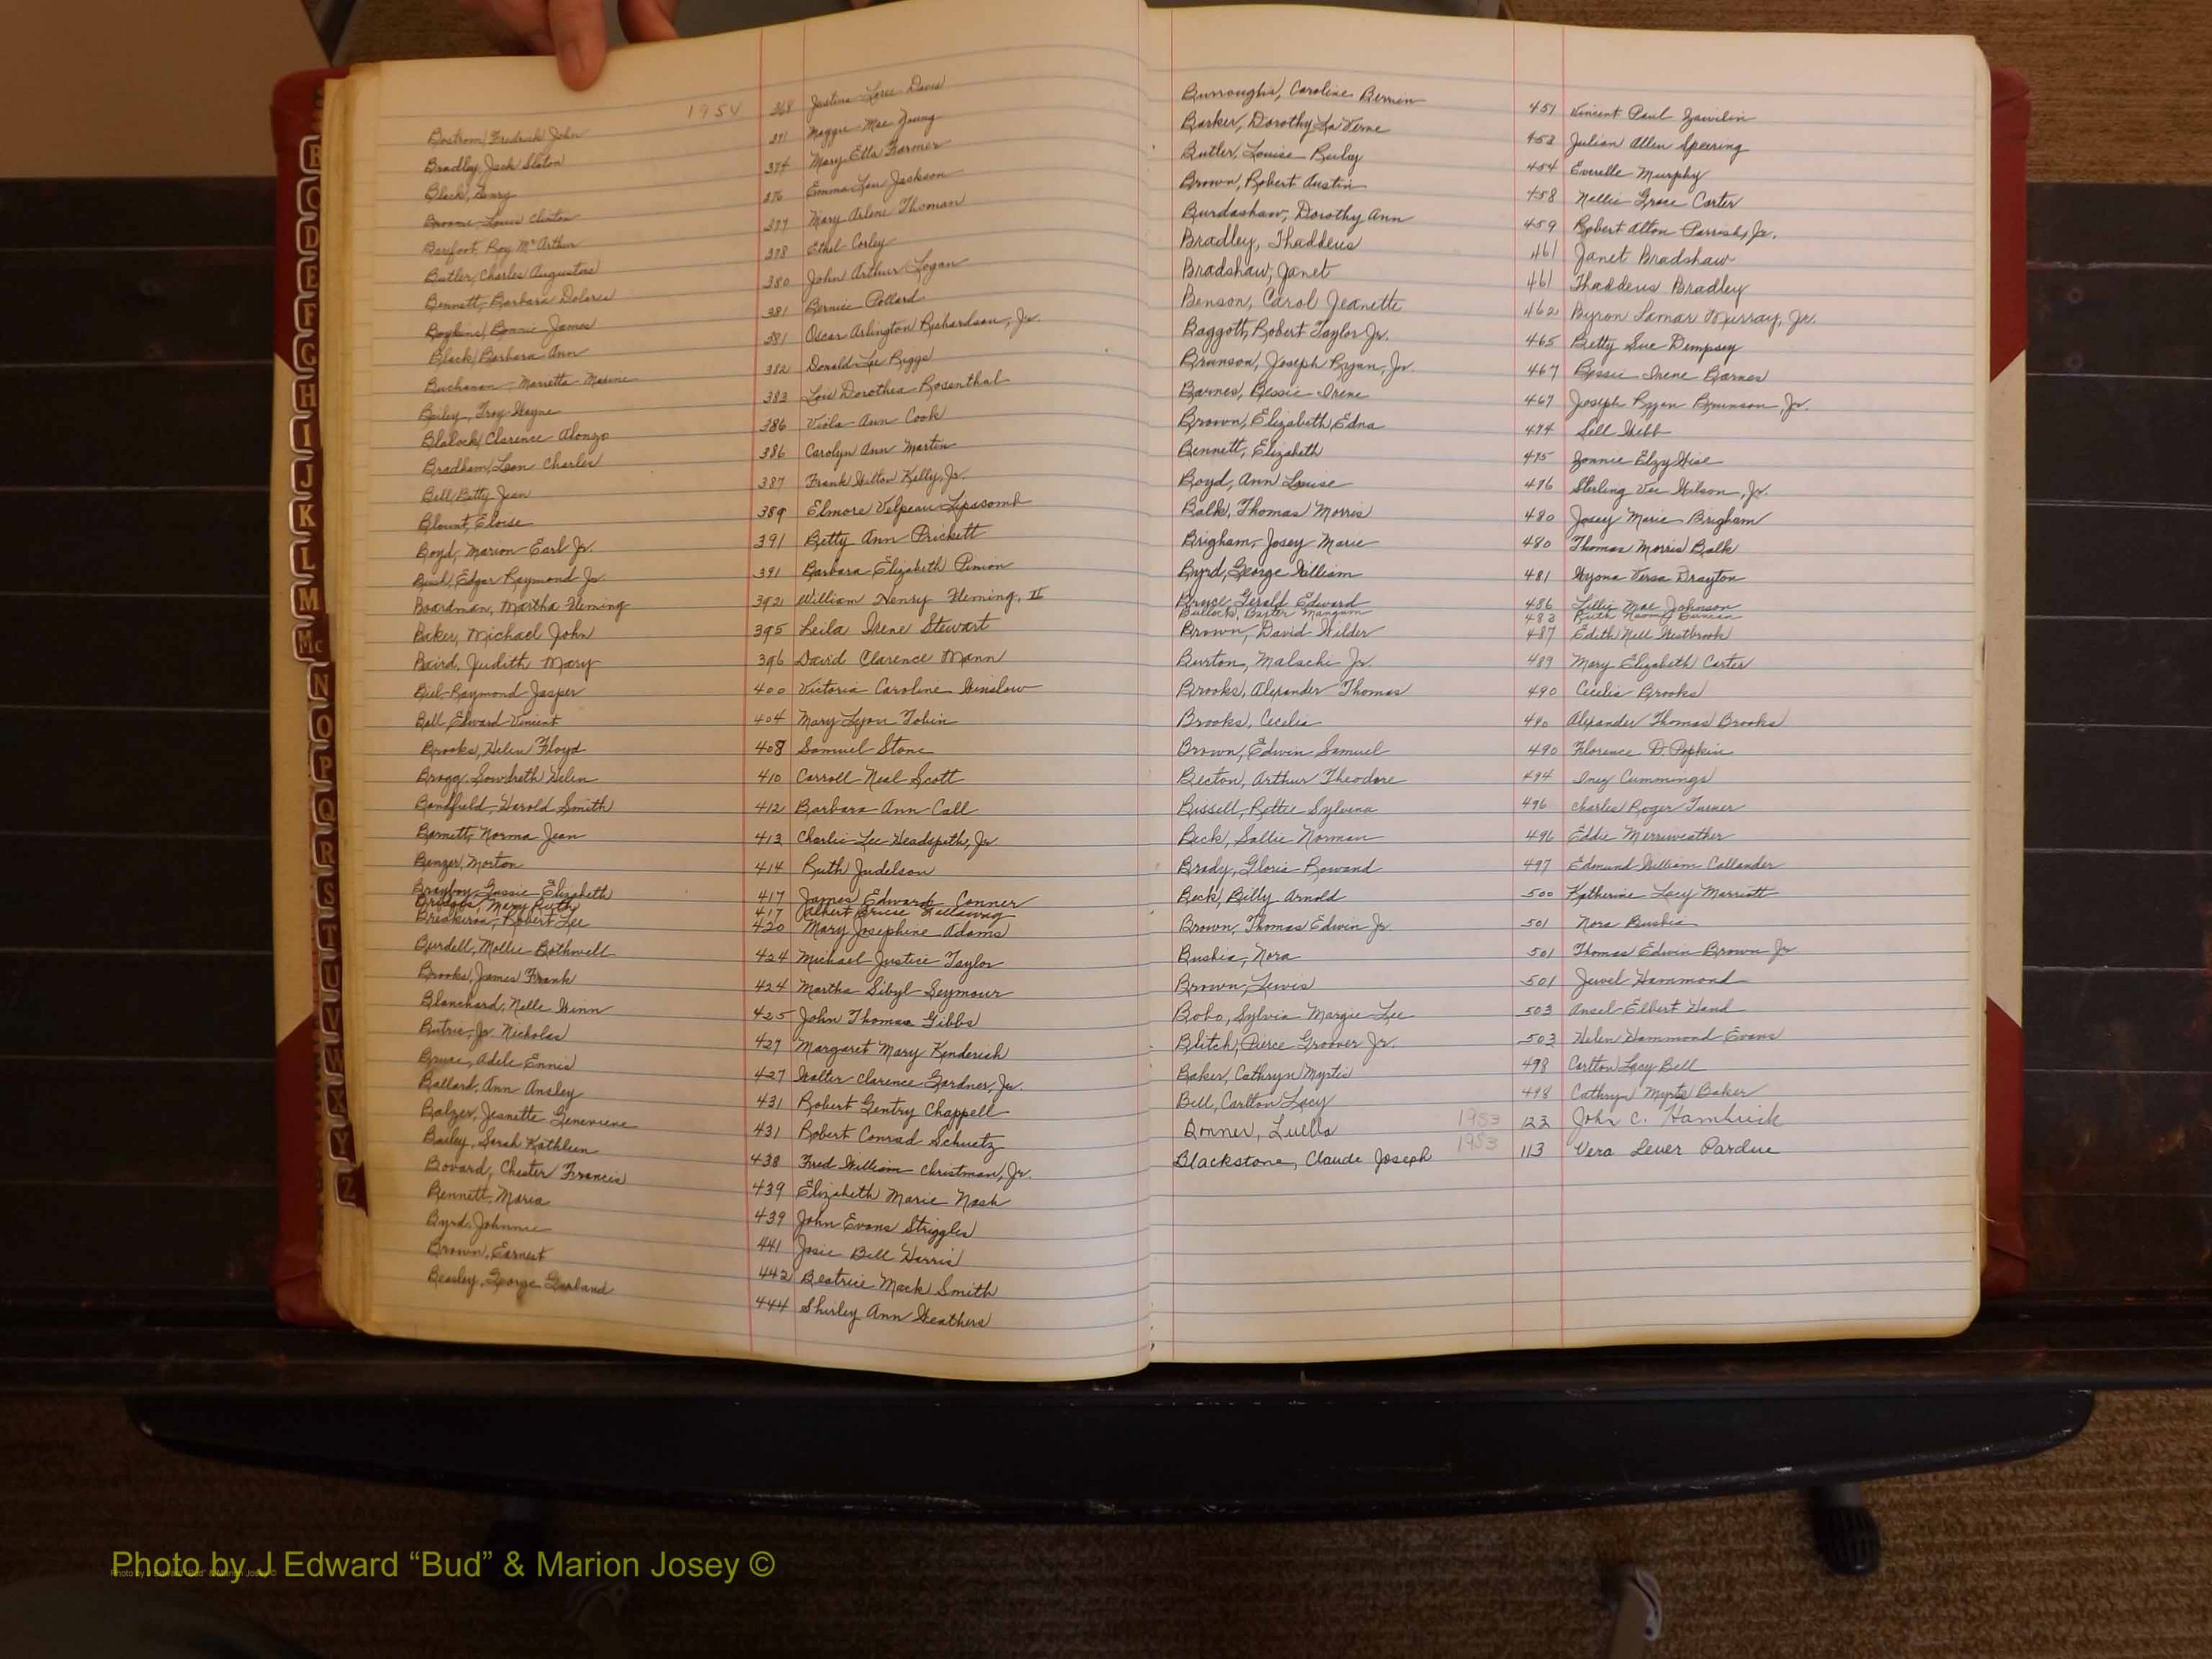 1954
Bostrom, Fredrick John 368 Justina Loree Davis
Bradley, Jack Slaton 371 Maggie Mae Young
Black, Henry 374 Mary Etta Farmer
Broome, Louis Clinton 376 Emma Lou Jackson
Barefoot, Roy McArthur 377 Mary Arlene Thoman
Butler, Charles Augustus 378 Ethel Corley
Bennett, Barbara Dolores 380 John Arthur Logan
Boykins, Bonnie James 381 Bernice Pollard
Black, Barbara Ann 381 Oscar Arlington Richardson, Jr.
Buchanan Marietta Maxine 382 Donald Lee Riggs
Bailey, Troy Wayne 383 Lois Dorothea Rosenthal
Blalock, Clarence Alonzo 386 Viola Ann Cook
Bradham, Leon Charles 386 Carolyn Ann Martin
Bell, Betty Jean 387 Frank Hilton Kelly, Jr.
Blount, Eloise 389 Elmore Velpeau Lipscomb
Boyd, Marion Earl Jr. 391 Betty Ann Prickett
Bush, Edgar Raymond Jr. 391 Barbara Elizabeth Pinion
Boardman, Martha Fleming 392 William Henry Fleming, II
Baker, Michael John 395 Leila Irene Stewart
Baird, Judith Mary 396 David Clarence Mann
Biel Raymond Jasper 400 Victoria Caroline Winslow
Ball, Edward Vincent 404 Mary Lyon Tobin
Brooks, Helen Floyd 408 Samuel Stone
Bragg, Helen 410 Carroll Neal Scott
Bandfield, Harold Smith 412 Barbara Ann Call
Barnett, Norma Jean 413 Charlie Lee Headspeth, Jr.
Benzer, Morton 414 Ruth Judelson
Brayboy, Gussie Elizabeth 417 James Edward Conner
Bridges, Mary Ruth 417 Albert
Breakiron, Robert Lee 420 Mary Josephine Adams
Burdell, Mollie Bothwell 424 Michael Justice Taylor
Brooks, James Frank 424 Martha Sibyl Seymour
Blanchard, Nelle Winn 425 John Thomas Gibbs
Butrie, Jr. Nicholas 427 Margaret Mary Kenderish
Bruce, Adele Ennis 427 Walter Clarence Gardner, Jr.
Ballard, Ann Ansley 431 Robert Gentry Chappell
Balzer, Jeanette Genevieve 431 Robert Conrad Schuetz
Bailey, Sarah Kathleen 438 Fred William Christman, Jr.
Bovard, Chester Francis 439 Elizabeth Marie Nash
Bennett, Maria 439 John Evans Striggles
Byrd, Johnnie 441 Josie Bell Harris
Brown, Earnest 442 Beatrice Mack Smith
Beasley, George Garland 444 Shirley Ann Weathers
Burroughs, Caroline Bernin 451 Vincent Paul Zawilin
Barker, Dorothy La Verne 452 Julian Allen Speering
Butler, Louise Ruby 454 Everelle Murphy
Brown, Robert Austin 458 Nellie Grace Carter
Burdashaw, Dorothy Ann 459 Robert Alton Parrish, Jr.
Bradley, Thaddeus 461 Janet Bradshaw
Bradshaw, Janet 461 Thaddeus Bradley
Benson, Carol Jeanette 462 Byron Lamar Murray, Jr.
Baggott, Robert Taylor Jr. 465 Betty Sue Dempsey
Brunson, Joseph Ryan, Jr. 467 Bessie Irene Barnes
Barnes, Bessie Irene 467 Joseph Ryan Brunson, Jr.
Brown, Elizabeth Edna 474 Sill Webb
Bennett, Elizabeth 475 Zonnie Elzy Wise
Boyd, Ann Louise 476 Sterling Vee Wilson, Jr.
Balk, Thomas Morris 480 Josey Marie Brigham
Brigham, Josey Marie 480 Thomas Morris Balk
Byrd, George William 481 Wyona Versa Drayton
Bruce, Gerald Edward 486 Lillie Mae Johnson
Bullock, Baxter Mangum 482 Ruth Naomi Duncan
Brown, David Wilder 487 Edith Nell Westbrook
Burton, Malachi Jr. 489 Mary Elizabeth Carter
Brooks, Alexander Thomas 490 Cecelia Brooks
Brooks, Cecelia 490 Alexander Thomas Brooks
Brown, Edwin Samuel 490 Florence D. Popkin
Becton, Arthur Theodore 494 Iney Cummings
Bissell, Rettie Sylvina 496 Charles Roger Turner
Beck, Sallie Norman 496 Eddie Merriweather
Brady, Gloria Rowand 497 Edmund William Callander
Beck, Billy Arnold 500 Katherine Lacy Marriott
Brown, Thomas Edwin Jr. 501 Nora Bushia
Bushia, Nora 501 Thomas Edwin Brown Jr.
Brown, Lewis 501 Jewel Hammond
Boho, Sylvia Margie Lee 503 Ansel Elbert Hand
Blitch, Pierce Groover Jr. 503 Helen Hammond Evans
Baker, Cathryn Myrtis 498 Carlton Lacy Bell
Bell, Carlton Lacy 498 Cathryn Myrtis Baker
Bonner, Luella 1953 123 John C. Hambrick
Blackstone, Claude Joseph 1953 113 Vera Lever Pardue
B
C
D
E
F
G
H
I
J
K
L
M
Mc
N
O
P
Q
R
S
T
U
V
W
X
Y
Z
Photo by J Edward “Bud” & Marion Josey ©
Photo by J Edward “Bud” & Marion Josey ©